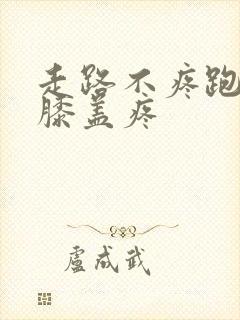 走路不疼跑
膝盖疼
盧成武